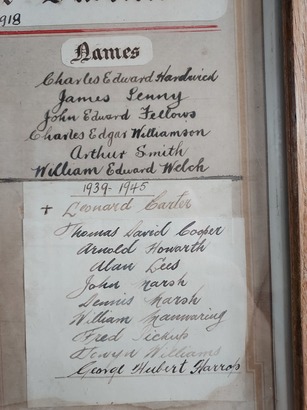 1918
Names
Charles Edward Hardwick
James Penny
John Edward Fellows
Charles Edgar Williamson
Arthur Smith
William Edward Welch
1939-1945
+ Leonard Carter
Thomas David Cooper
Arnold Howarth
Alan Lees
John Marsh
Dennis Marsh
William Mannaring
Fred Pickup
Williams
George Hubert Harrop